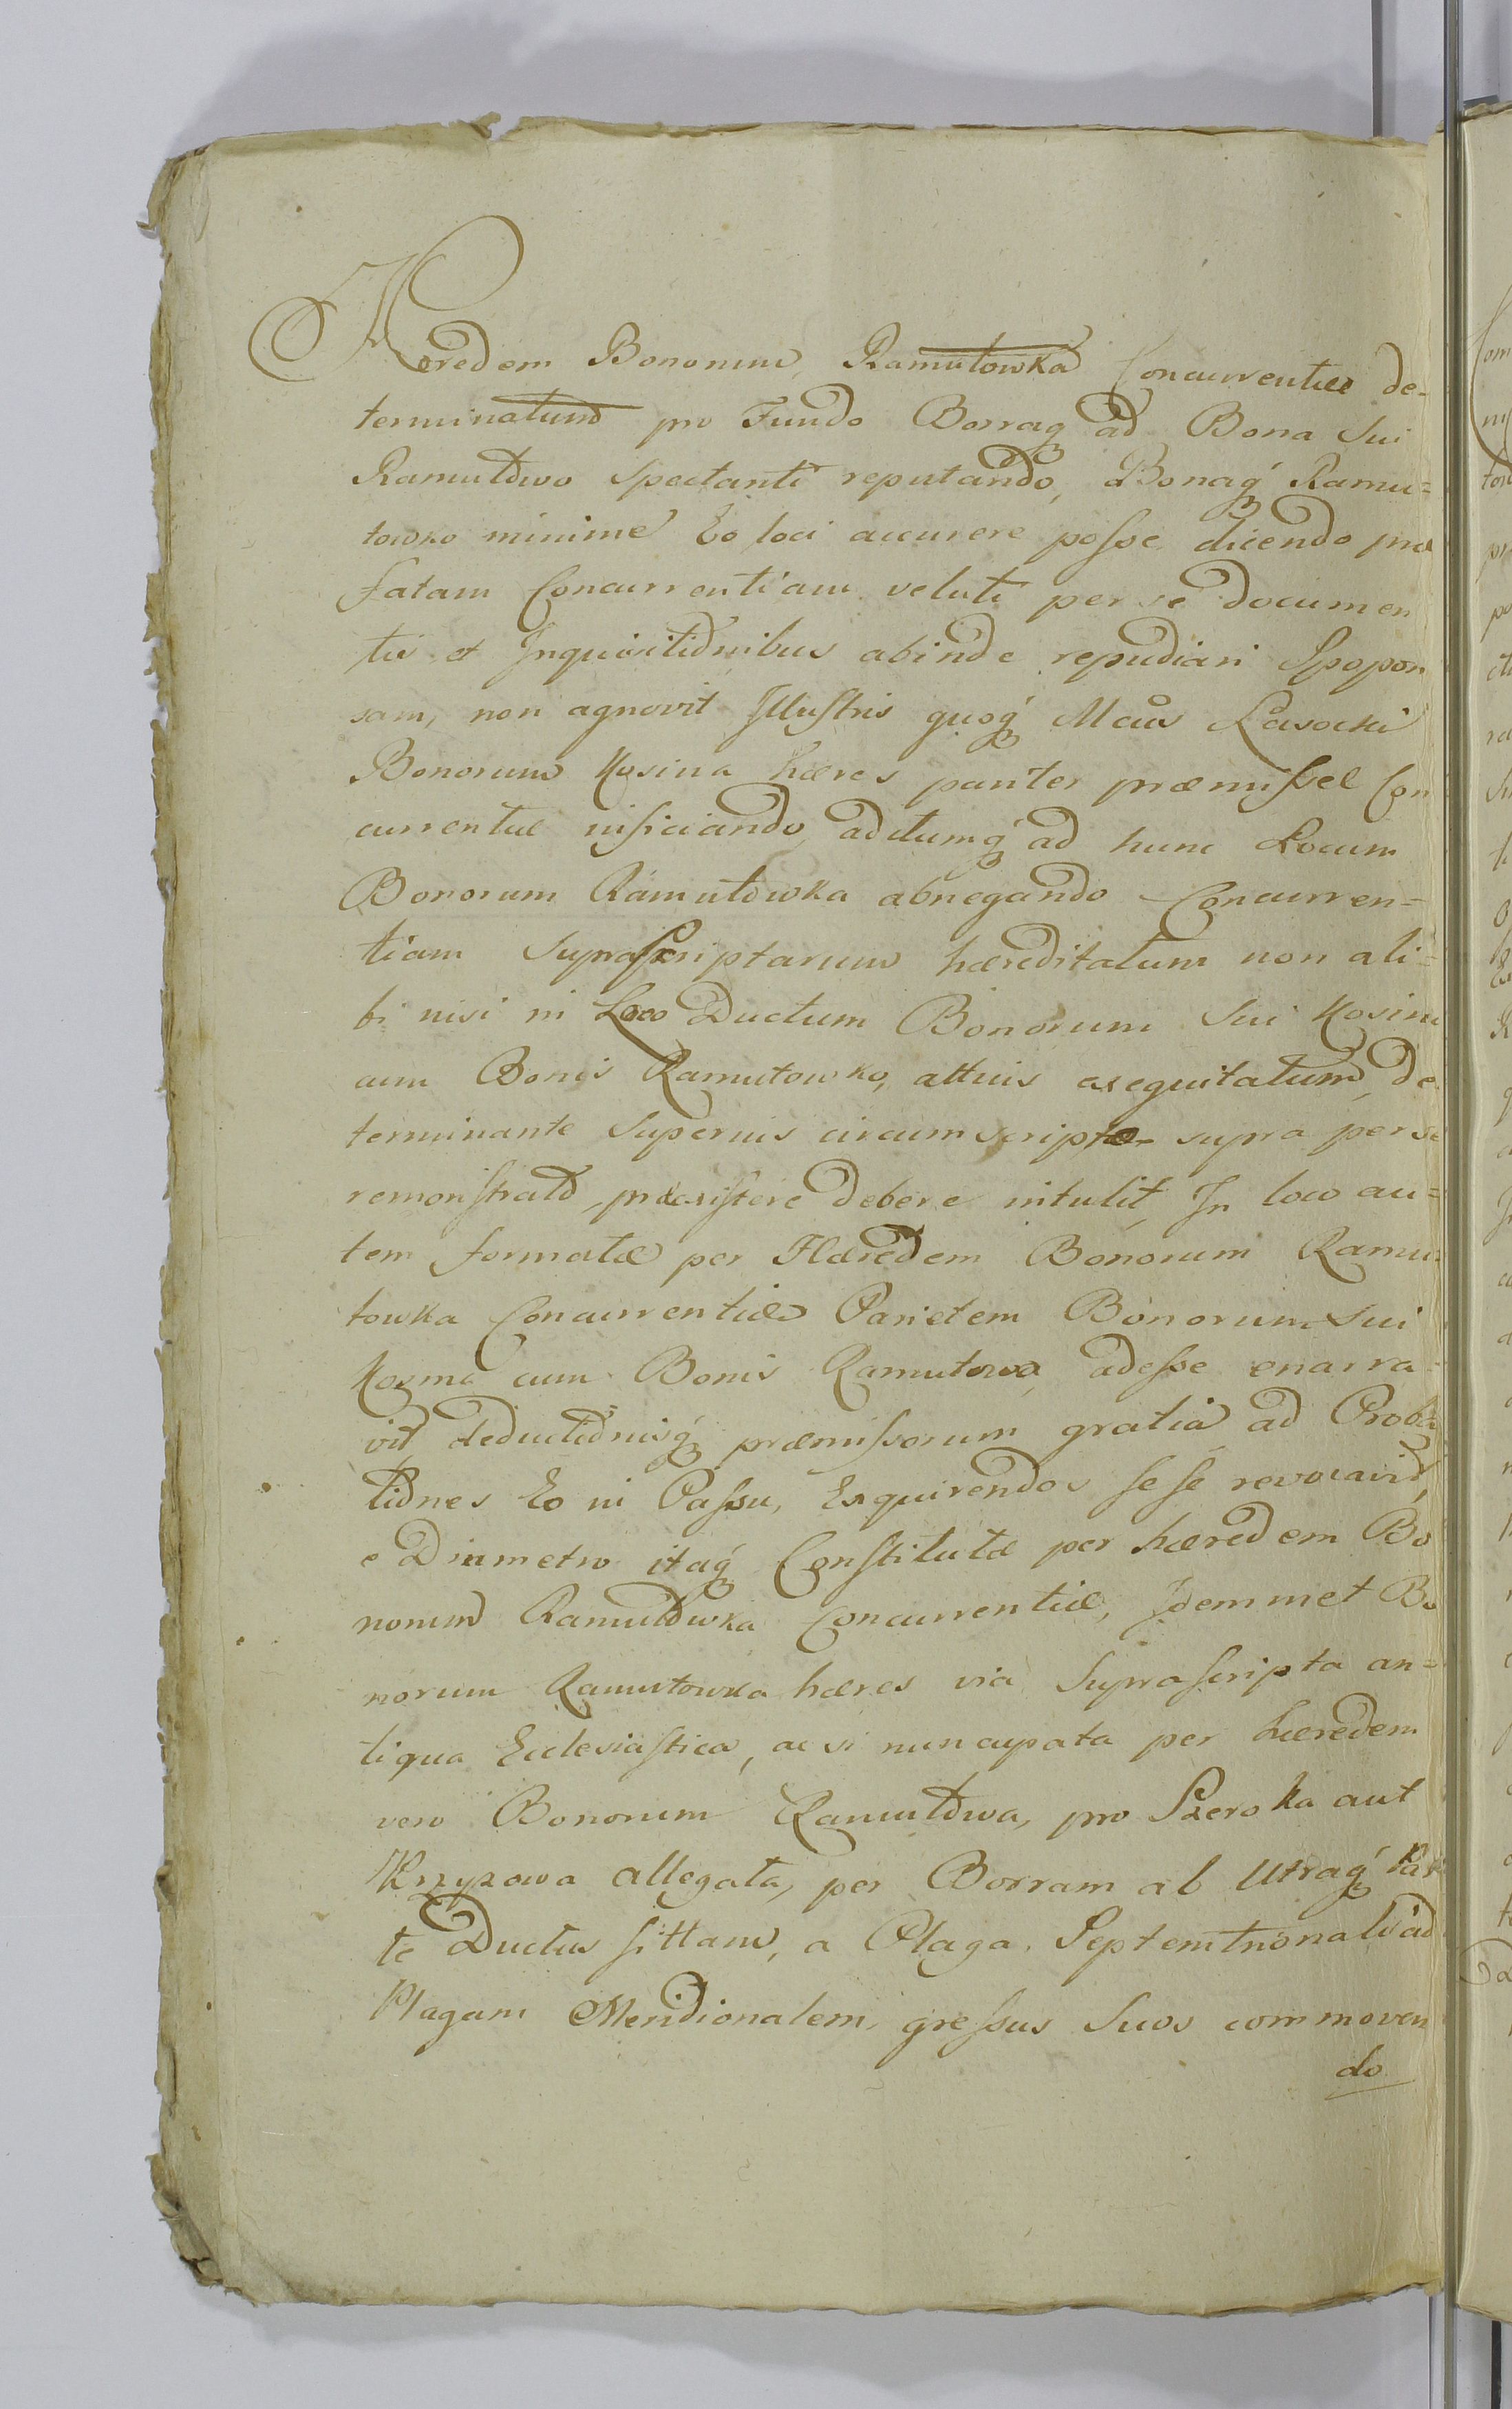 Hæredem Bonorum, Ramutowka Concurrentiæ de-
terminatum pro Fundo Borraq́ ad Bona sui
Ramutowo spectanti reputando, Bonaq́ Ramu=
towko minime Eo loci accurere posse dicendo præ
fatam Concurrentiam veluti per se documen
tis et Inquisitionibus abinde repudiari Spopon
sam, non agnovit Illustris quoq́ Mcus Lasocki
Bonorum Kosina hæres pariter præmissæ Con
currentiæ inficiando, aditumq́ ad hunc Locum
Bonorum Ramutowka abnegando Concurren=
tiam suprascriptarum hæreditatum non ali=
bi nisi in Loco Ductum Bonorum sui Kosina
cum Bonis Ramutowko, altius exequitatum, de
terminante superius circumscripto supra per se
remonstrato, præexistere debere intulit, In loco au=
tem formatæ per Hæredem Bonorum Ramu=
towka Concurrentiæ Parietem Bonorum sui
Kozina cum Bonis Ramutowo, adesse enarra=
vit deductionisq́ præmissorum gratia ad Proba
tiones Eo in Passu, Exquirendos sese revocavit,
e Diametro itaq́ Constitutæ per hæredem Bo
norum Ramutowka Concurrentiæ, Idemmet Bo
norum Ramutowka hæres via suprascripta an=
tiqua Ecclesiastica, ac si nuncupata per hæredem
vero Bonorum Ramutowa, pro Szeroka aut
Krzyzowa allegata, per Borram ab Utraq́ Par
te Ductus sittam, a Plaga Septemtrionali ad
Plagam Meridionalem, gressus suos commoven
do